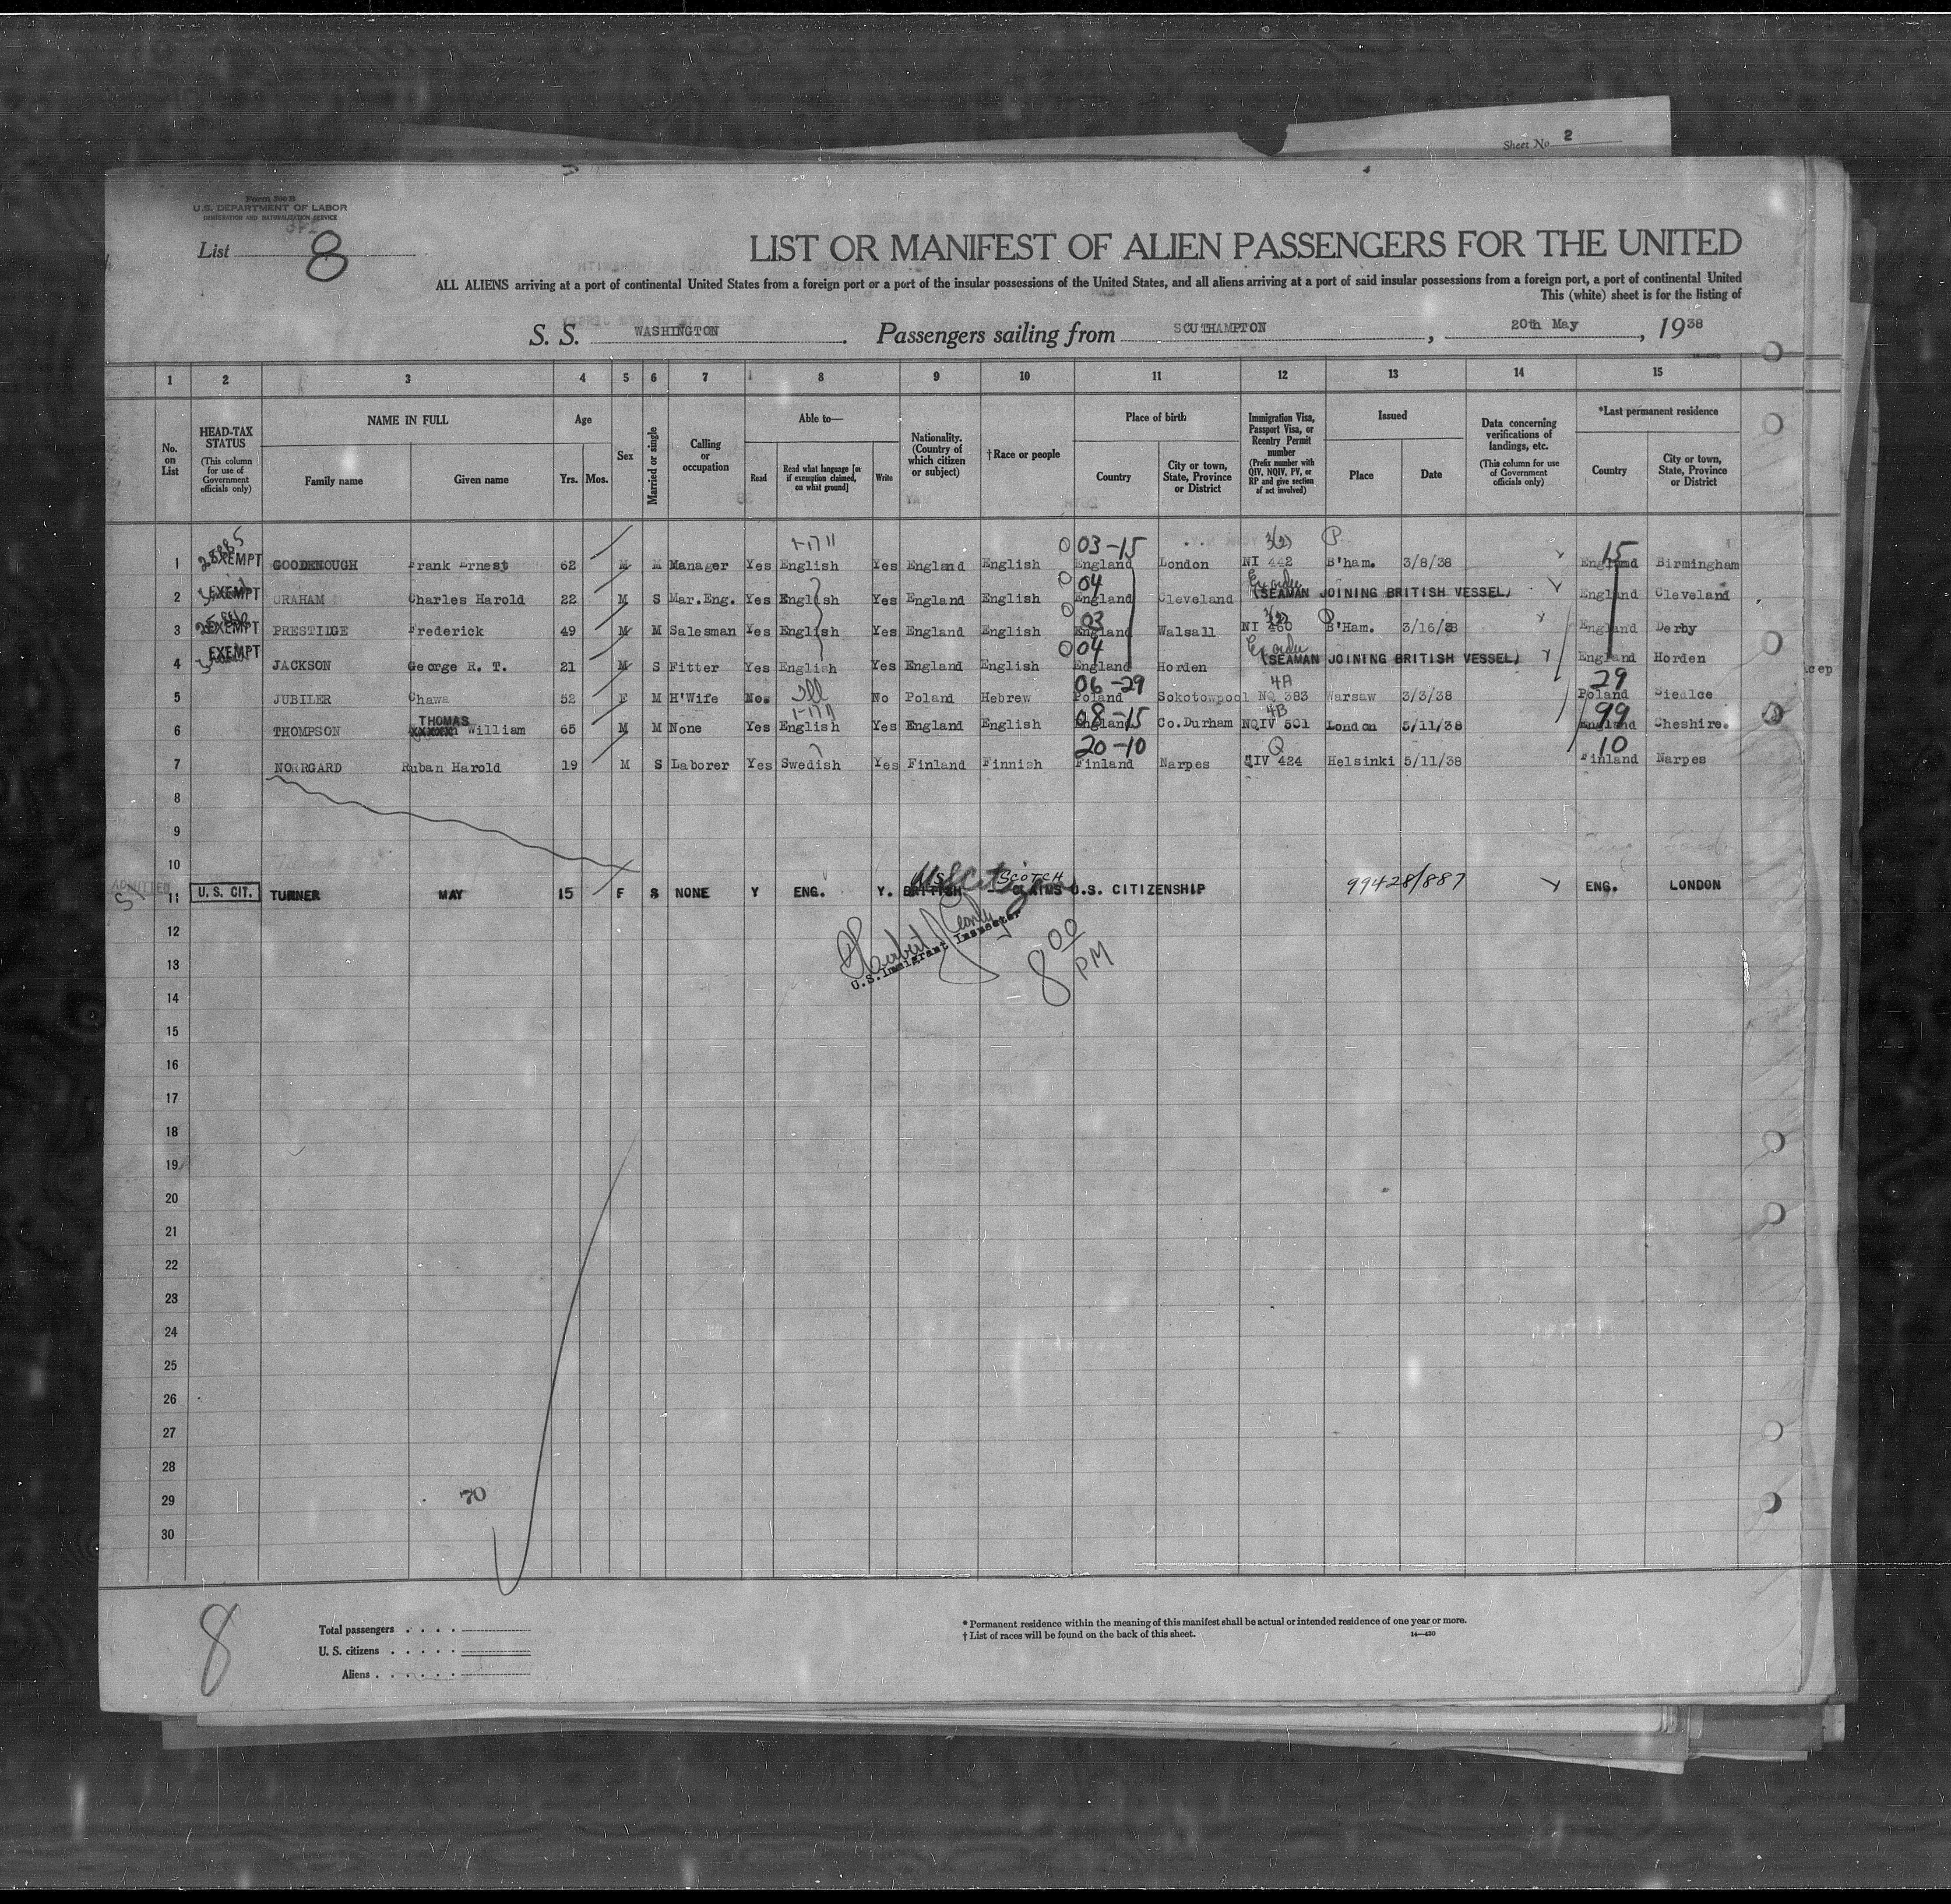 Sheet No. 2
Form 500 B
U.S. DEPARTMENT OF LABOR
IMMIGRATION AND NATURALIZATION SERVICE
List 8
LIST OR MANIFEST OF ALIEN PASSENGERS FOR THE UNITED
ALL ALIENS arriving at a port of continental United States from a foreign port or a port of the insular possessions of the United States, and all aliens arriving at a port of said insular possessions from a foreign port, a port of continental United
This (white) sheet is for the listing of
S. S. WASHINGTON. Passengers sailing from SOUTHAMPTON, 20th May, 1938
1 2 3 4 5 6 7 8 9 10 11 12 13 14 15
No. on List
HEAD-TAX STATUS (This column for use of Government officials only)
NAME IN FULL
Family name
Given name
Age
Yrs. Mos.
Sex
Married or single
Calling or occupation
Able to—
Read
Read what language [or if exemption claimed, on what ground]
Write
Nationality. (Country of which citizen or subject)
†Race or people
Place of birth
Country
City or town, State, Province or District
Immigration Visa, Passport Visa, or Reentry Permit number (Prefix number with QIV, NQIV, PV, or RP and give section of act involved)
Issued
Place
Date
Data concerning verifications of landings, etc. (This column for use of Government officials only)
*Last permanent residence
Country
City or town, State, Province or District
03-15 3(2) P 15
1 EXEMPT GOODENOUGH Frank Ernest 62 M M Manager Yes English Yes England English England London NI 442 B'ham. 3/8/38 England Birmingham
04
2 EXEMPT GRAHAM Charles Harold 22 M S Mar.Eng. Yes English Yes England English England Cleveland (SEAMAN JOINING BRITISH VESSEL) England Cleveland
03 3(2) P
3 EXEMPT PRESTIDGE Frederick 49 M M Salesman Yes English Yes England English England Walsall NI 460 B'Ham. 3/16/38 England Derby
04
4 EXEMPT JACKSON George R. T. 21 M S Fitter Yes English Yes England English England Horden (SEAMAN JOINING BRITISH VESSEL) England Horden
Ill 06-29 4A 29
5 JUBILER Chawa 52 F M H'Wife No. No Poland Hebrew Poland Sokotowpool NQ 383 Warsaw 3/3/38 Poland Siedlce
THOMAS 08-15 4B 99
6 THOMPSON William 65 M M None Yes English Yes England English England Co.Durham NQIV 501 London 5/11/38 England Cheshire.
20-10 Q 10
7 NORRGARD Ruban Harold 19 M S Laborer Yes Swedish Yes Finland Finnish Finland Narpes QIV 424 Helsinki 5/11/38 Finland Narpes
8
9
10
ADMITTED
U.S. SCOTCH
11 U. S. CIT. TURNER MAY 15 F S NONE Y ENG. Y. BRITISH CLAIMS U.S. CITIZENSHIP 99428/887 ENG. LONDON
US Citizen
12
U.S. Immigrant Inspector
13
8 00 PM
14
15
16
17
18
19
20
21
22
23
24
25
26
27
28
29
70
30
8
Total passengers
U. S. citizens
Aliens
* Permanent residence within the meaning of this manifest shall be actual or intended residence of one year or more.
† List of races will be found on the back of this sheet.
14—420